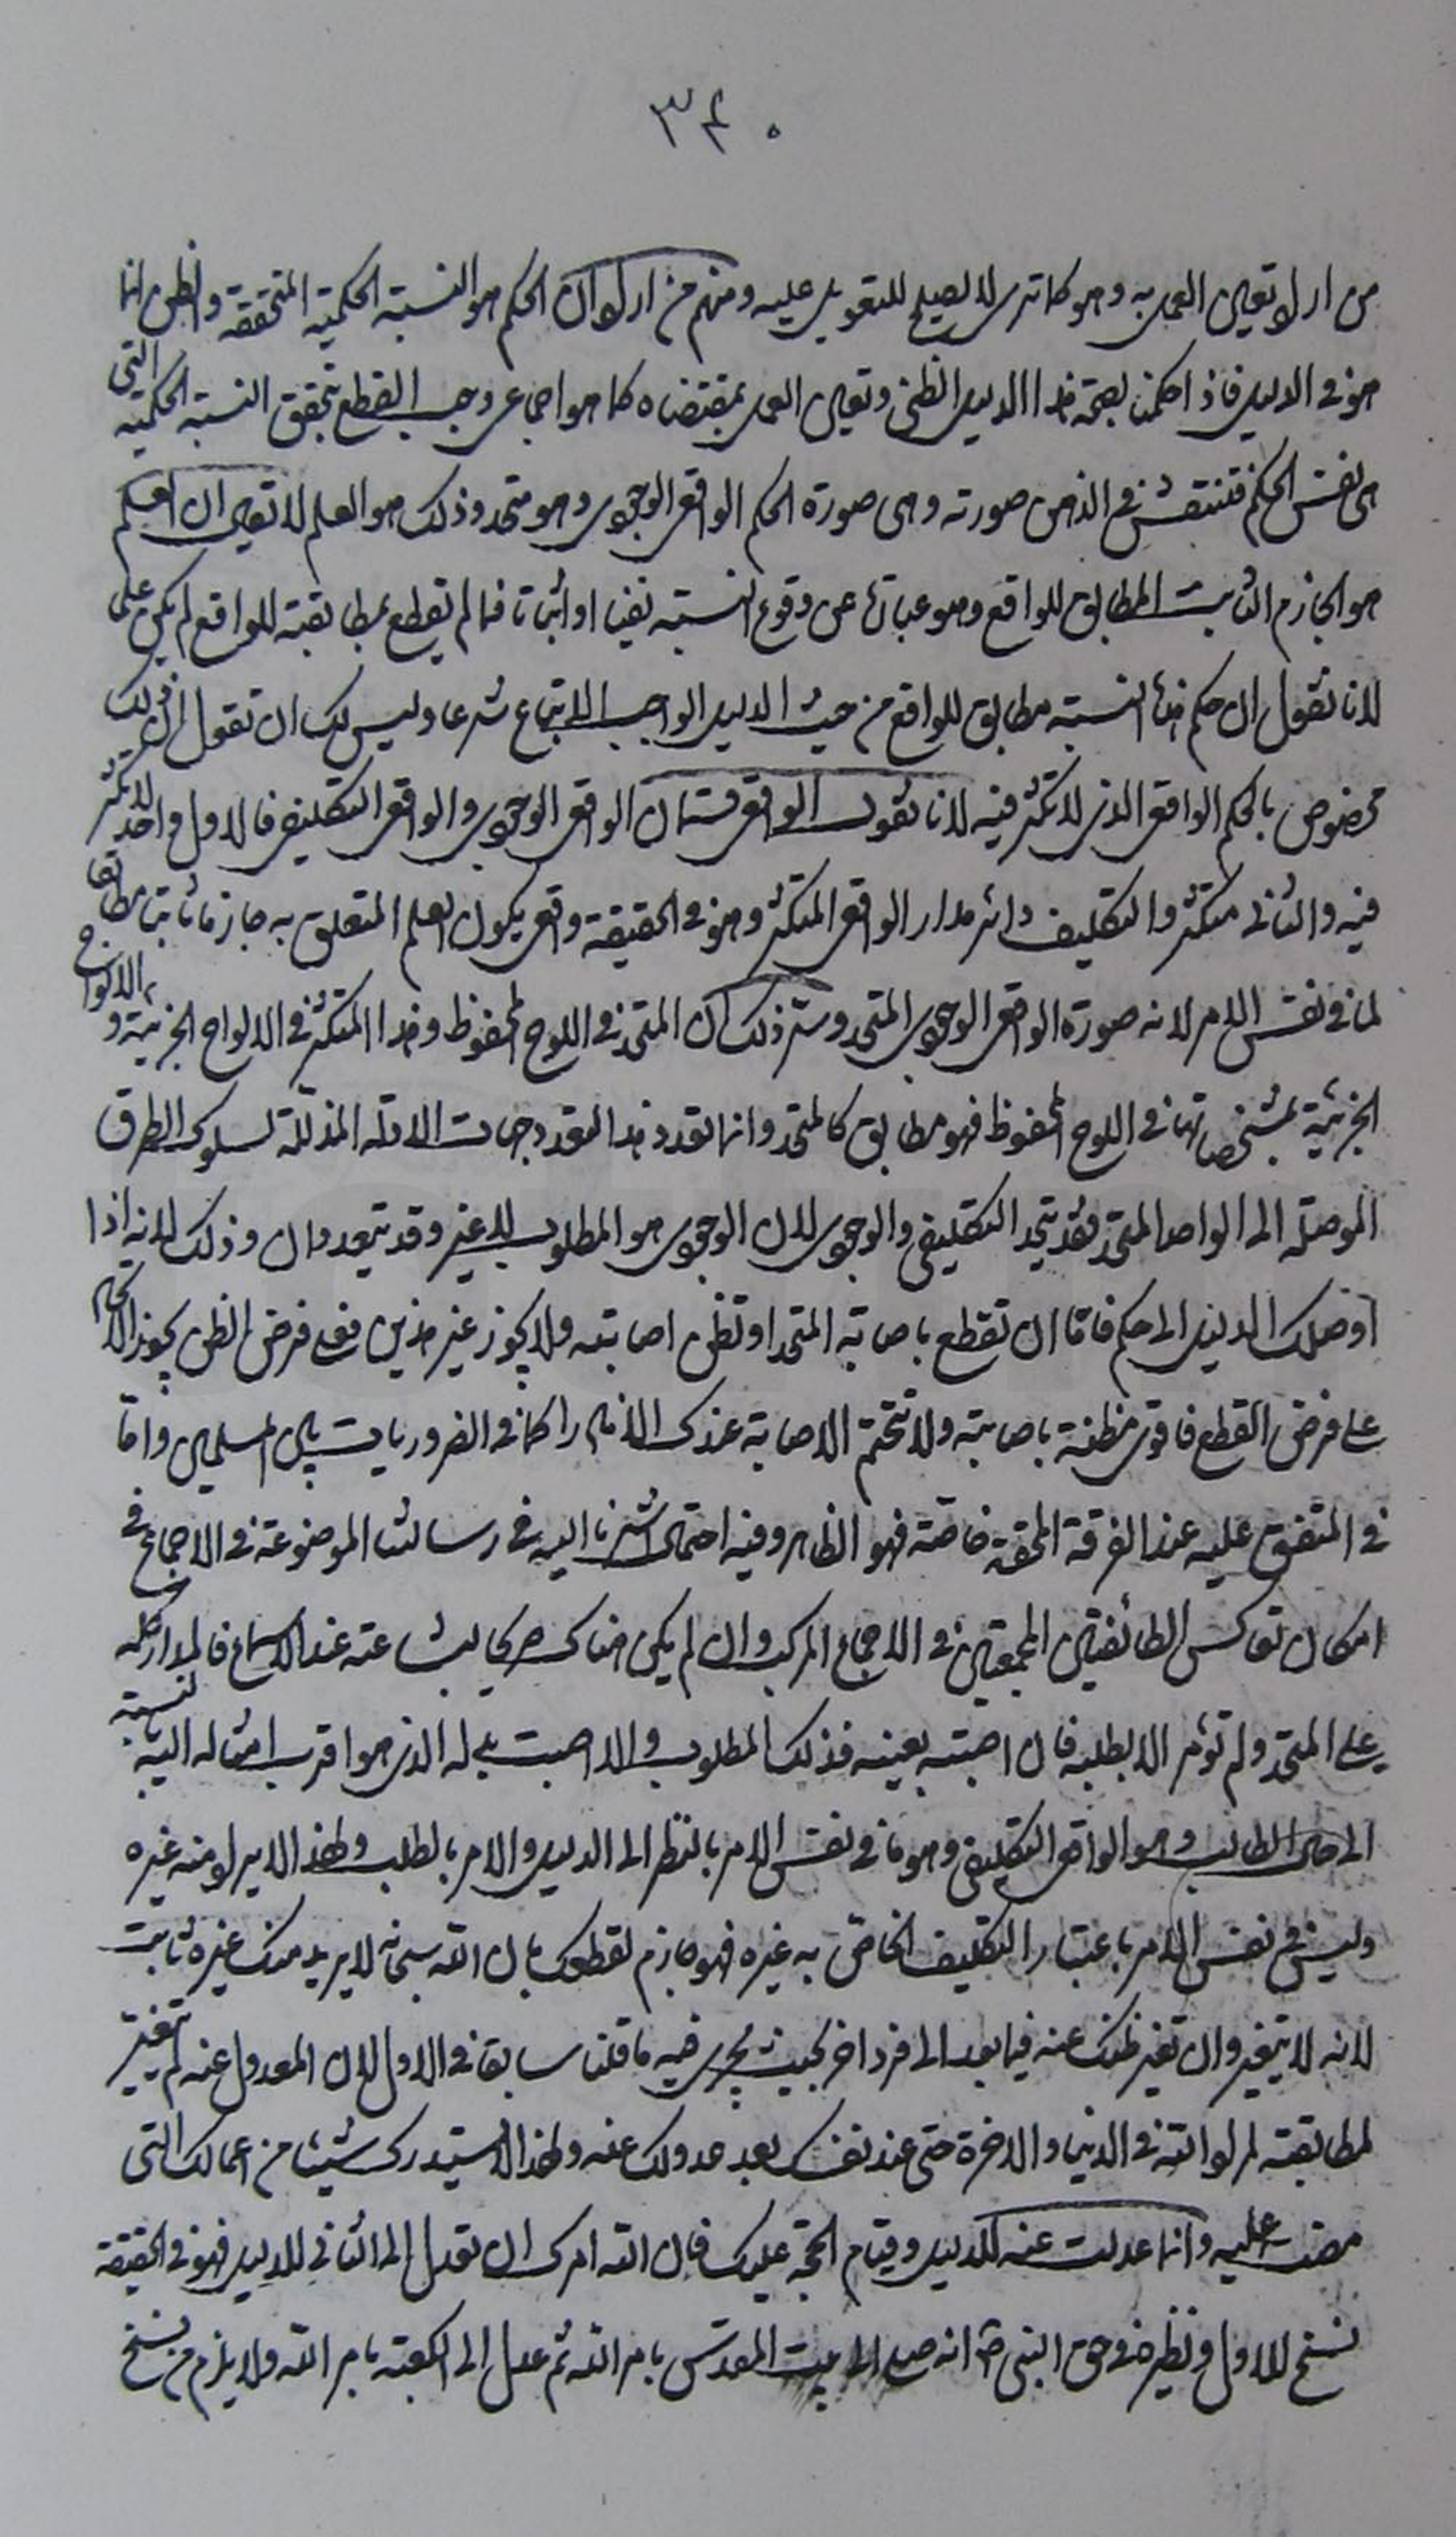 ۳۴۰
من اراد تعين العمل به وهو كما ترى لا يصلح للتعويل عليه ومنهم من اراد ان الحكم هو النسبة الحكمية المتحققة والظن انما
هو في الدليل فاذا حكمنا بصحة هذا الدليل الظني وتعين العمل بمقتضاه كما هو اجماعي وجب القطع بتحقق النسبة الحكمية التي
هي نفس الحكم فتنتقش في الذهن صورته وهي صورة الحكم الواقعي الوجودي وهو متحد وذلك هو العلم لا تقول ان العلم
هو الجازم الثابت المطابق للواقع وهو عبارة عن وقوع النسبة نفيا او اثباتا فما لم يقطع بمطابقته للواقع لم يكن علما
لانا نقول ان حكم هذه النسبة مطابق للواقع من حيث الدليل الواجب الاتباع شرعا وليس لك ان تقول ان ذلك
مخصوص بالحكم الواقعي الذي لا تكثر فيه لانا نقول الواقعي قسمان الواقعي الوجودي والواقعي التكليفي فالاول واحد لا تكثر
فيه والثاني متكثر والتكليف دائر مدار الواقعي المتكثر وهو في الحقيقة واقعي يكون العلم المتعلق به جازما ثابتا مطابقا
لما في نفس الامر لانه صورة الواقعي الوجودي المتحد وسر ذلك ان المتحد في اللوح المحفوظ وهذا المتكثر في الالواح الجزئية والالواح
الجزئية بمشخصاتها في اللوح المحفوظ فهو مطابق كالمتحد وانما تعدد هذا لتعدد جهات الادلة المذللة لسلوك الطرق
الموصلة الى الواحد المتحد فقد يتحد التكليفي والوجودي لان الوجودي هو المطلوب لا غير وقد يتعددان وذلك لانه اذا
اوصلك الدليل الى حكم فاما ان تقطع باصابة المتحد او تظن اصابته ولا يجوز غير هذين فعلى فرض الظن يجوز الامران
على فرض القطع فاقوى مظنة باصابته ولا تتحتم الاصابة عندك الا نادرا كما في الضروريات بين المسلمين واما
في المتفق عليه عند الفرقة المحقة خاصة فهو الظاهر وفيه احتمال اشرنا اليه في رسالتنا الموضوعة في الاجماع في
امكان تعاكس الطائفتين المجمعتين في الاجماع المركب وان لم يكن هناك تركيب لبشاعته عند الاسماع فالمدار كله
على المتحد ولم تؤمر الا بطلبه فان اصبته بعينه فذلك المطلوب والا اصبت بدله الذي هو اقرب امثاله اليه بالنسبة
الى حال الطالب وهو الواقعي التكليفي وهو ما في نفس الامر بالنظر الى الدليل والامر بالطلب ولهذا لا يراد منه غيره
وليس في نفس الامر باعتبار التكليف الخاص به غيره فهو جازم لقطعك بان الله سبحانه لا يريد منك غيره ثابت
لانه لا يتغير وان تغير ظنك عنه فيما بعد الى فرد اخر بحيث يجري فيه ما قلنا سابقا في الاول لان المعدول عنه لم يتغير
لمطابقته لمراد الله في الدنيا والاخرة حتى عند نفسك بعد عدولك عنه ولهذا لا تستدرك شيئا من اعمالك التي
مضت عليه وانما عدلت عنه للدليل وقيام الحجة عليك فان الله امرك ان تعدل الى الثاني للدليل فهو في الحقيقة
نسخ للاول ونظيره في حق النبي ص انه صلى الى بيت المقدس بامر الله ثم عدل الى الكعبة بامر الله ولا يلزم من نسخ